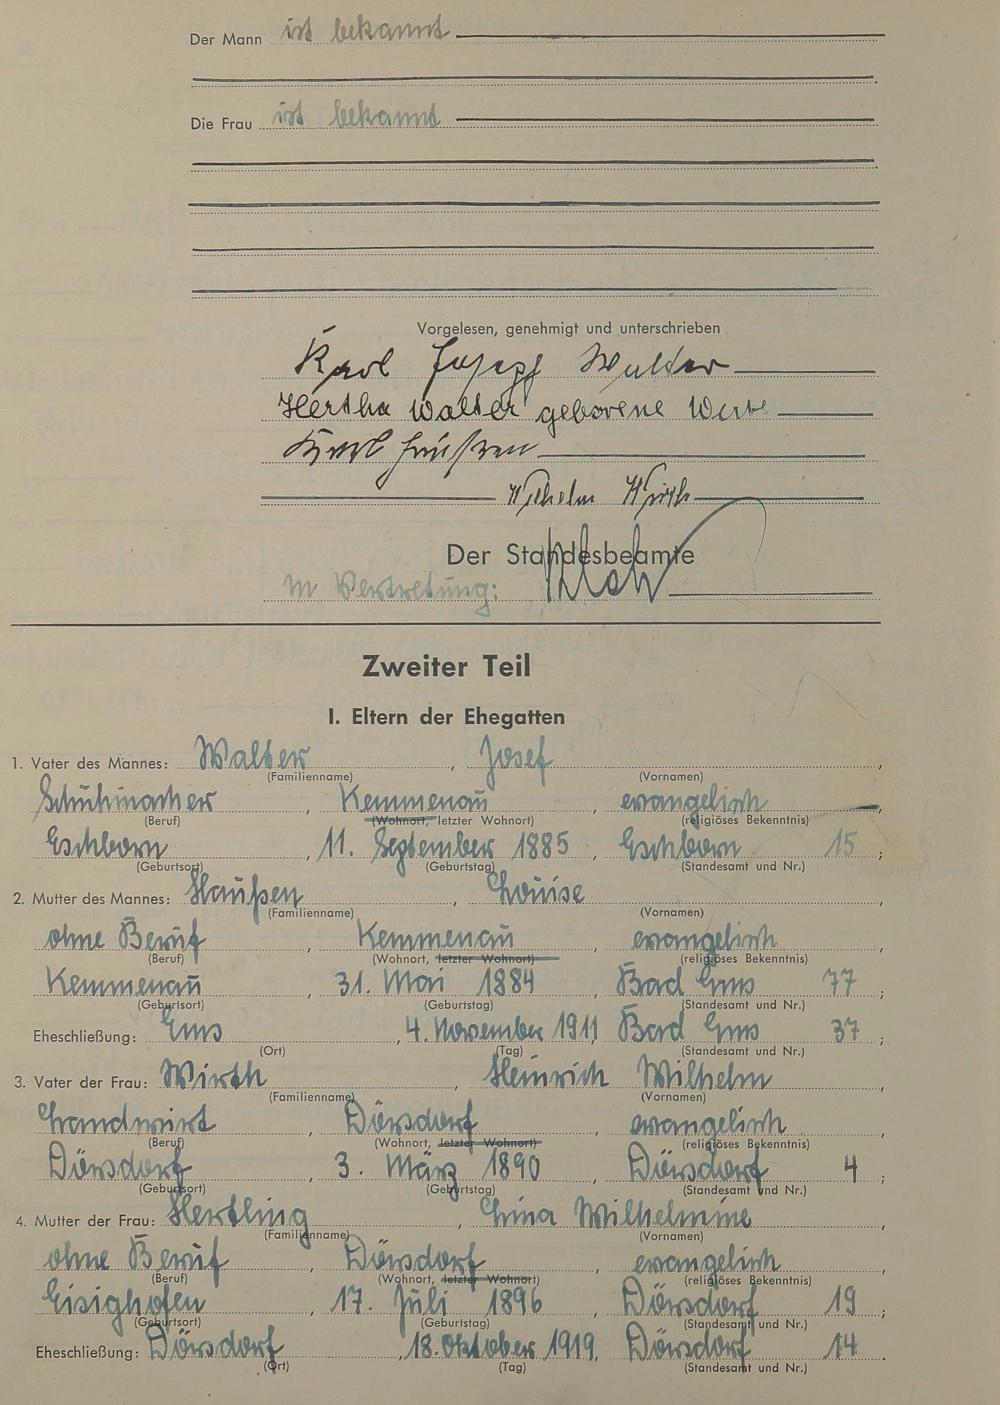 Der Mann ist bekannt
Die Frau ist bekannt
Vorgelesen, genehmigt und unterschrieben
Karl Josef Walter
Hertha Walter geborene
Karl
Wilhelm Wirth
Der Standesbeamte
In Vertretung:
Zweiter Teil
I. Eltern der Ehegatten
1. Vater des Mannes: Walter, Josef,
(Familienname) (Vornamen)
Schuhmacher, Kemmenau, evangelisch
(Beruf) (Wohnort, letzter Wohnort) (religiöses Bekenntnis)
Eschborn, 11. September 1885, Eschborn 15;
(Geburtsort) (Geburtstag) (Standesamt und Nr.)
2. Mutter des Mannes: Haußen, Louise,
(Familienname) (Vornamen)
ohne Beruf, Kemmenau, evangelisch,
(Beruf) (Wohnort, letzter Wohnort) (religiöses Bekenntnis)
Kemmenau, 31. Mai 1884, Bad Ems 77;
(Geburtsort) (Geburtstag) (Standesamt und Nr.)
Eheschließung: Ems, 4. November 1911, Bad Ems 37;
(Ort) (Tag) (Standesamt und Nr.)
3. Vater der Frau: Wirth, Heinrich Wilhelm,
(Familienname) (Vornamen)
Landwirt, Dörsdorf, evangelisch,
(Beruf) (Wohnort, letzter Wohnort) (religiöses Bekenntnis)
Dörsdorf, 3. März 1890, Dörsdorf 4;
(Geburtsort) (Geburtstag) (Standesamt und Nr.)
4. Mutter der Frau: Hertling, Lina Wilhelmine,
(Familienname) (Vornamen)
ohne Beruf, Dörsdorf, evangelisch,
(Beruf) (Wohnort, letzter Wohnort) (religiöses Bekenntnis)
Eisighofen, 17. Juli 1896, Dörsdorf 19;
(Geburtsort) (Geburtstag) (Standesamt und Nr.)
Eheschließung: Dörsdorf, 18. Oktober 1919, Dörsdorf 14.
(Ort) (Tag) (Standesamt und Nr.)